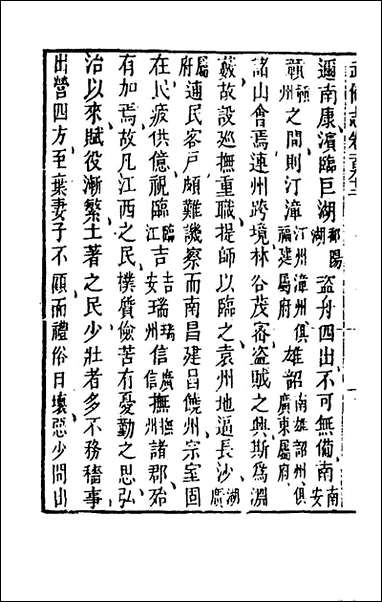 武備志卷
邇南康濱臨巨湖鄱陽湖盗舟四出不可無備南南安
贛贛州之間則汀漳汀州漳州俱福建屬府雄韶南雄韶州俱廣東屬府
諸山會焉連州跨境林谷茂密盗賊之興斯為淵
藪故設巡撫重職提師以臨之袁州地逼長沙湖廣
屬府逋民客戶頗難譏察而南昌建昌饒州宗室固
在民疲供億視臨臨江吉吉安瑞瑞州信廣信撫撫州諸郡殆
有加焉故凡江西之民樸質儉苦有憂勤之思弘
治以來賦役漸繁土著之民少壯者多不務穡事
出營四方至棄妻子不顧而禮俗日壞惡少間出